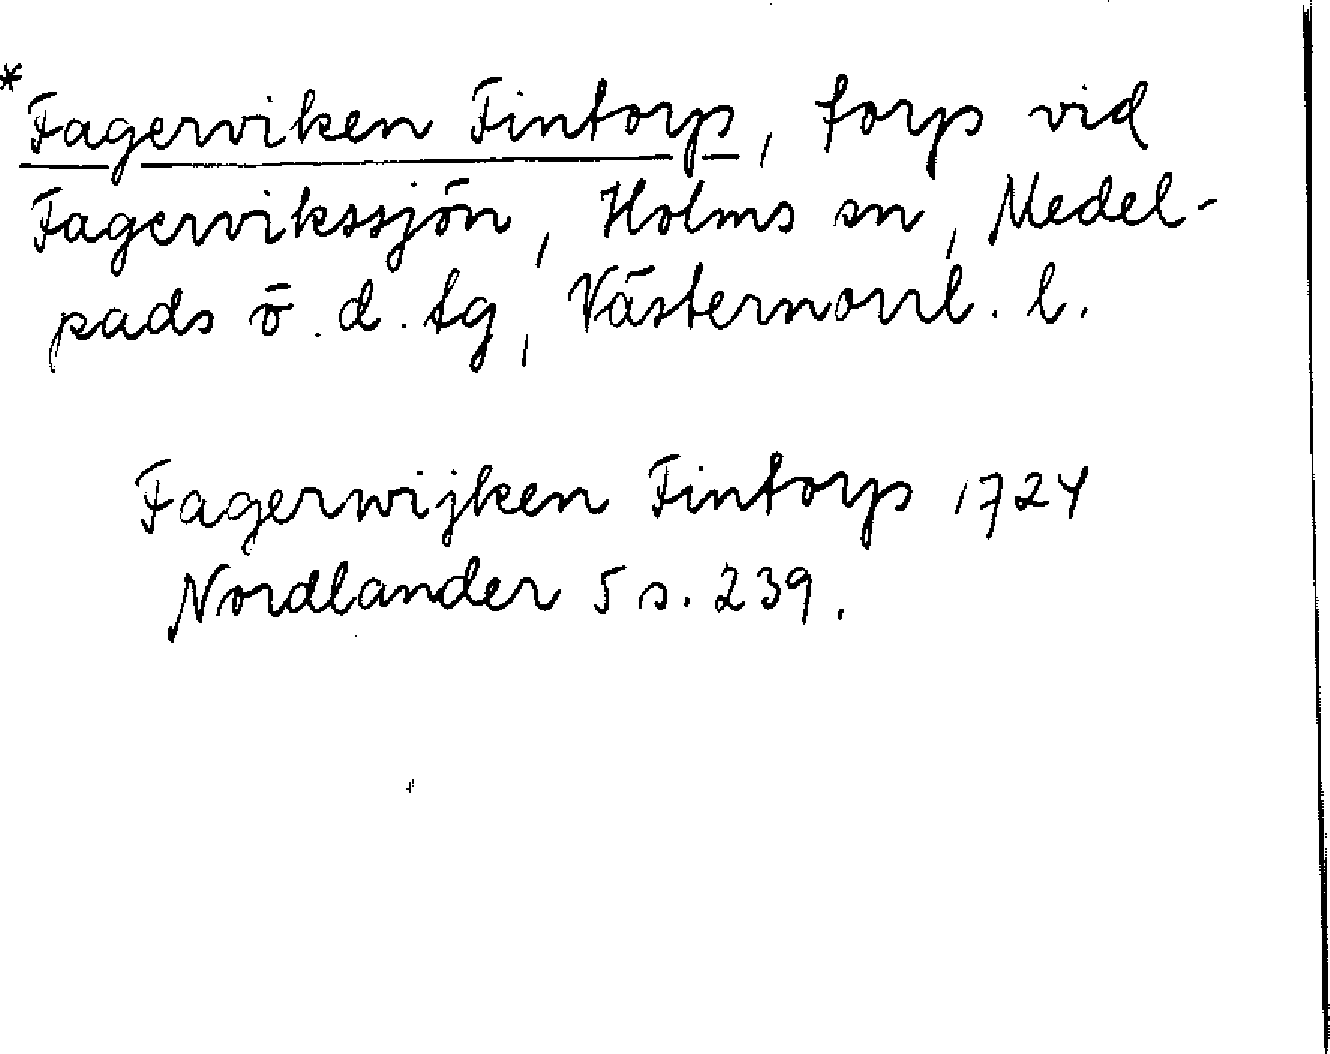 *Fagerviken Fintorp, torp vid
Fagervikssjön, Holms sn, Medel-
pads ö. d. tg, Västernorrl. l.
Fagerwijken Fintorp 1724
Nordlander 5 s. 239.